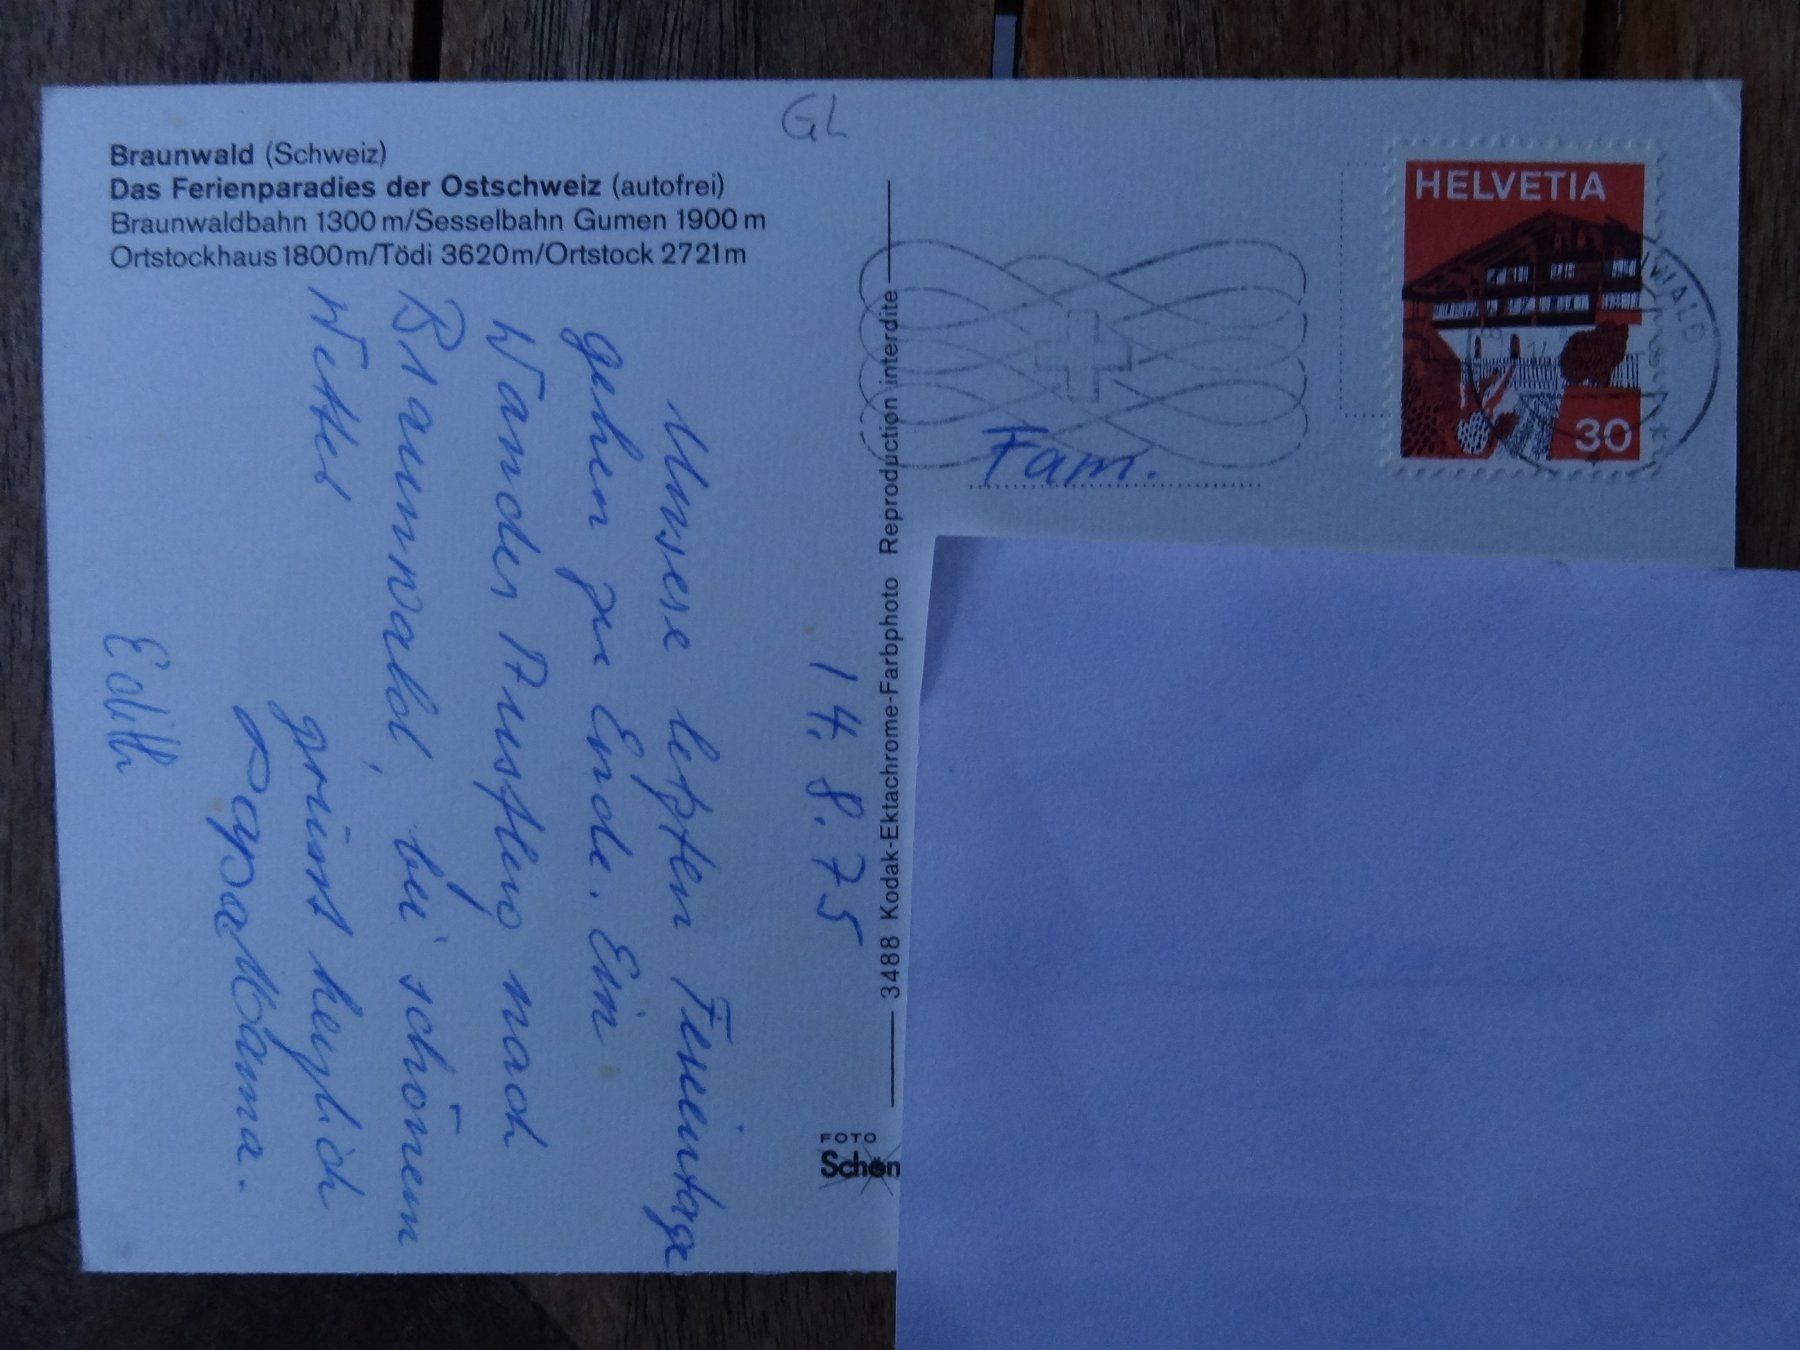 GL
Braunwald (Schweiz)
Das Ferienparadies der Ostschweiz (autofrei)
Braunwaldbahn 1300 m/Sesselbahn Gumen 1900 m
Ortstockhaus 1800 m/Tödi 3620 m/Ortstock 2721 m
14. 8. 75
Unsere letzten Ferientage
gehen zu Ende. Ein
Wander Ausflug nach
Braunwald, bei schönem
Wetter
grüsst herzlich
Papa Mama.
Edith
3488 Kodak-Ektachrome-Farbphoto Reproduction interdite
FOTO
Schön
HELVETIA
30
WALD
Fam.